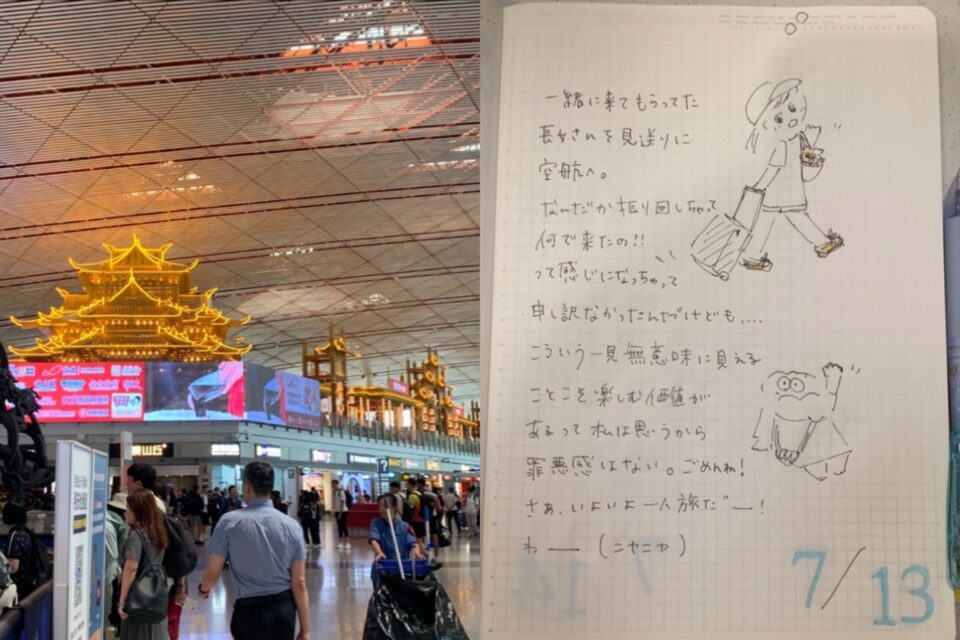 一緒に来てもらってた
長女さんを見送りに
空航へ。
なんだか振り回しちゃって
何で来たの!!
って感じになっちゃって
申し訳なかったんだけども、...
こういう一見無意味に見える
ことこそ楽しむ価値が
あるって私は思うから
罪悪感はない。ごめんね!
さぁ、いよいよ一人旅だー!
わー (ニヤニヤ)
7/13